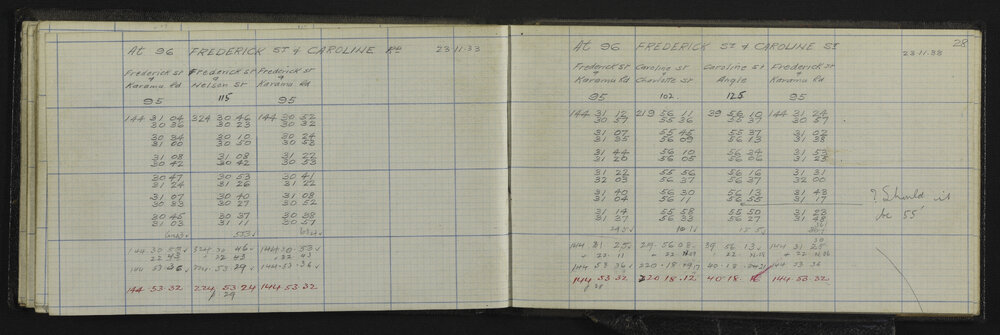 At 96 FREDERICK ST & CAROLINE RD 23.11.33
Frederick St Frederick St Frederick St
& & &
Karamu Rd Nelson St Karamu Rd
95 115 95
144 31 04 324 30 46 144 30 52
30 36 30 23 30 32
30 34 30 10 30 24
31 00 30 50 30 53
31 08 31 08 31 22
30 42 30 42 30 53
30 47 30 53 30 41
31 24 31 26 31 22
31 07 30 40 31 08
30 33 30 27 30 52
30 45 30 37 30 38
31 03 31 11 30 57
553
144 30 53 324 30 46 144 30 53
22 43 22 43 22 43
144 53 36 53 29 144 53 36
144 53 32 224 53 24 144 53 32
29
28
At 96 FREDERICK ST & CAROLINE ST 23.11.33
Frederick St Caroline St Caroline St Frederick St
& & & &
Karamu Rd Charlotte St Angle Karamu Rd
95 102 125 95
144 31 12 219 56 11 39 56 10 144 31 24
30 57 55 36 55 37 30 57
31 07 55 45 55 37 31 02
31 35 56 09 56 13 31 38
31 44 56 10 56 24 31 53
31 20 56 05 56 06 31 23
31 22 55 56 56 16 31 31
32 03 56 37 56 37 32 00
31 40 56 30 56 13 31 43
31 04 56 11 56 55 31 17
? Should it
be 55
31 14 55 58 55 50 31 23
31 27 56 33 56 27 31 48
144 31 25 219 56 08 39 56 13 144 31 25
22 11
144 53 36 220 18 40 18 144 53 36
144 53 32 220 18 12 40 18 16 144 53 32